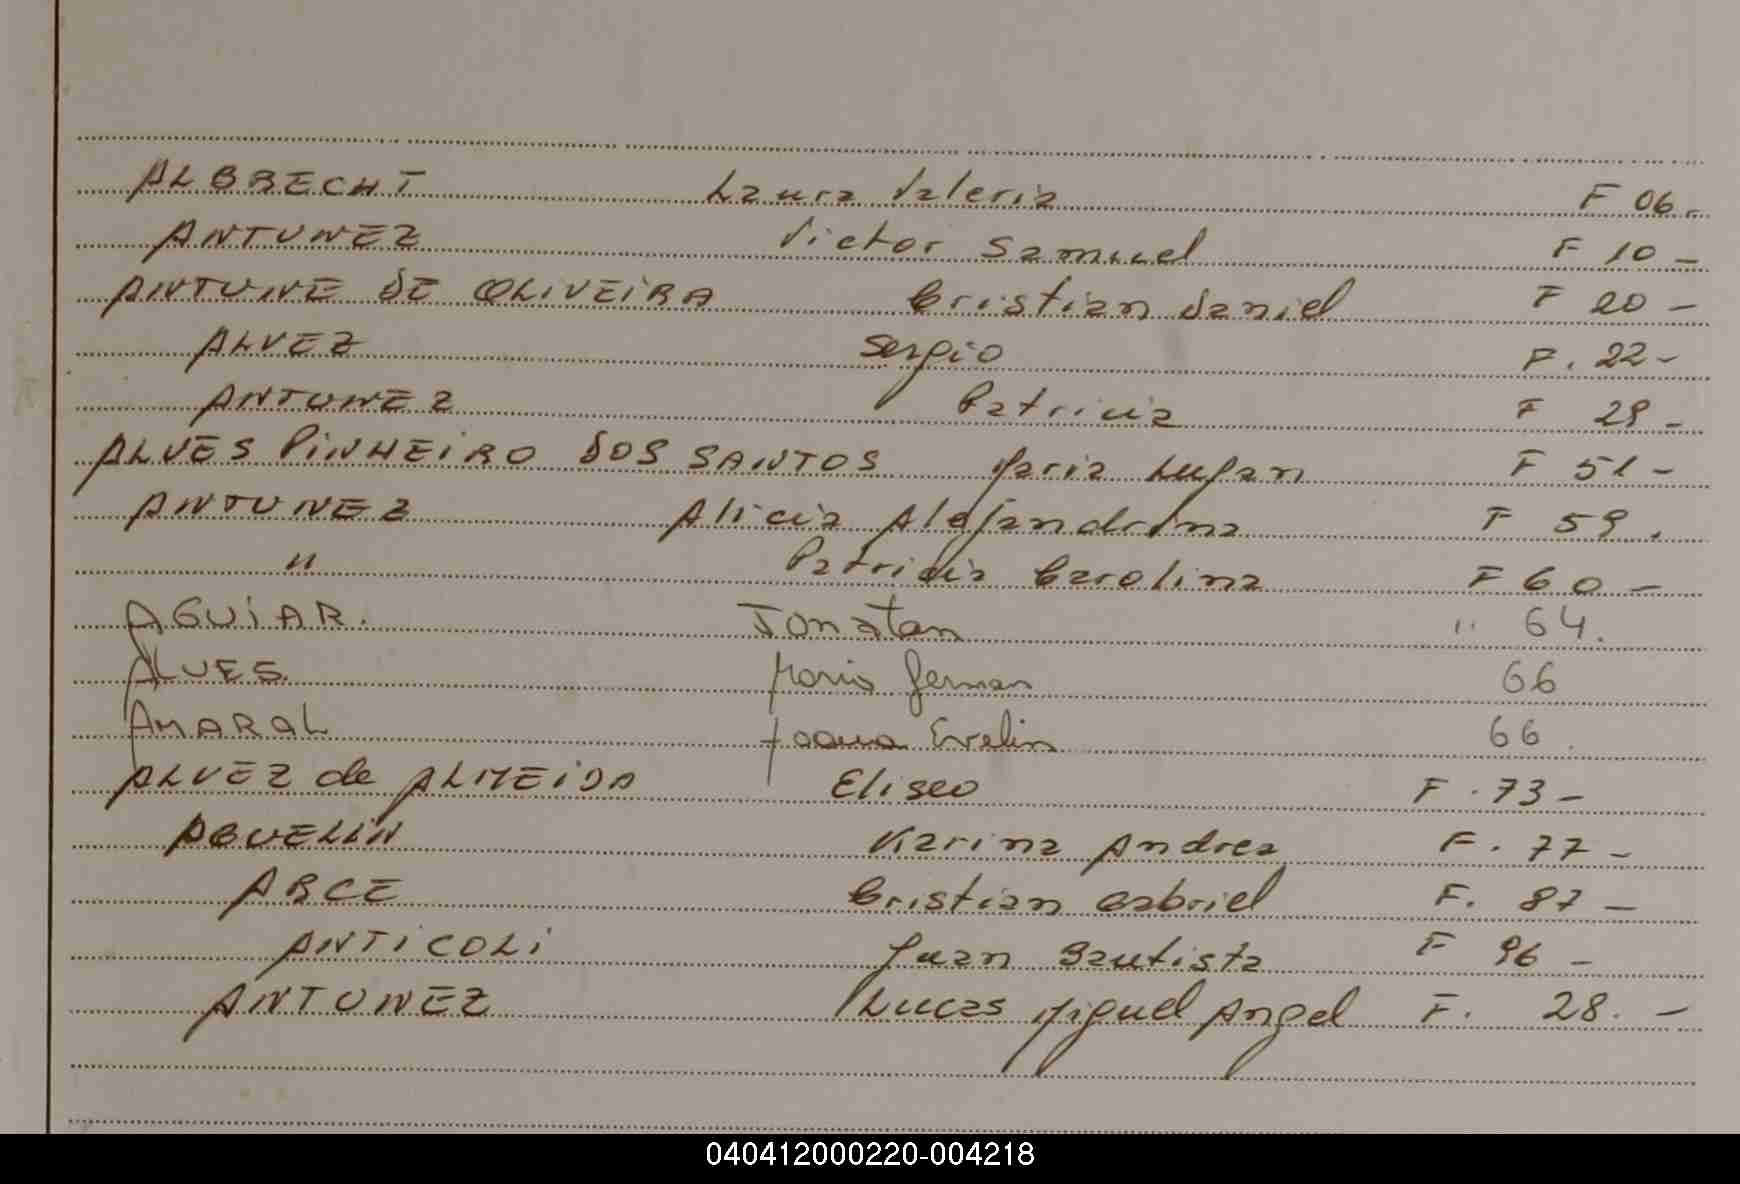 ALBRECHT Laura Valeria F 06.
ANTUNEZ Victor Samuel F 10 -
ANTUNE DE OLIVEIRA Cristian Daniel F 20 -
ALVEZ Sergio F. 22 -
ANTUNEZ Patricia F 29 -
ALVES PINHEIRO DOS SANTOS Maria F 51 -
ANTUNEZ Alicia Alejandrina F 59.
" Patricia Carolina F 60 -
AGUIAR. Jonatan " 64.
ALVES. Mario German 66
AMARAL Evelin 66.
ALVEZ de ALMEIDA Eliseo F. 73 -
AGUELIN Karina Andrea F. 77 -
ARCE Cristian Gabriel F. 87 -
ANTICOLI Juan Bautista F 96 -
ANTUNEZ Lucas Miguel Angel F. 28. -
040412000220-004218